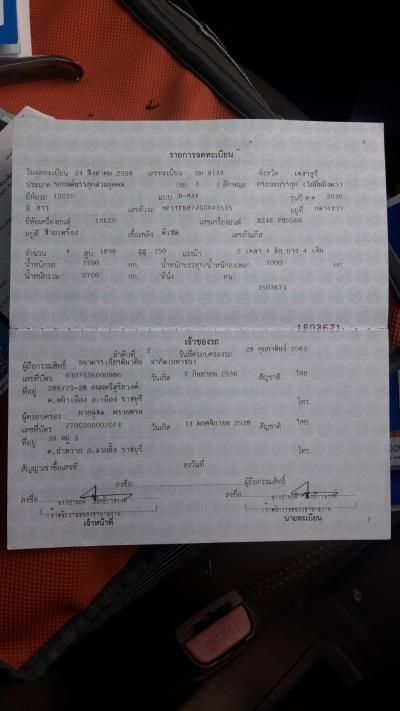 6
รายการจดทะเบียน
วันจดทะเบียน 24 สิงหาคม 2559 เลขทะเบียน 9133 จังหวัด เพชรบุรี
ประเภท รถยนต์บรรทุกส่วนบุคคล (รย. 3 ) ลักษณะ กระบะบรรทุก (ไม่มีหลังคา)
ยี่ห้อรถ ISUZU แบบ D-MAX รุ่นปี ค.ศ 2016
สี ขาว เลขตัวรถ อยู่ที่ กลางขวา
ยี่ห้อเครื่องยนต์ ISUZU เลขเครื่องยนต์ RZ4E
อยู่ที่ ซ้ายเครื่อง เชื้อเพลิง ดีเซล เลขถังแก๊ส
จำนวน 4 สูบ 1898 ซีซี 150 แรงม้า 2 เพลา 4 ล้อ ยาง 4 เส้น
น้ำหนักรถ 1700 กก. น้ำหนักบรรทุก/น้ำหนักลงเพลา 1000 กก.
น้ำหนักรวม 2700 กก. ที่นั่ง คน
1503671
1503671
เจ้าของรถ
ลำดับที่ 2 วันที่ครอบครองรถ 28 กุมภาพันธ์ 2563
ผู้ถือกรรมสิทธิ์ ธนาคารเกียรตินาคิน จำกัด(มหาชน)
เลขที่บัตร 0107536000986 วันเกิด 7 กันยายน 2536 สัญชาติ ไทย
ที่อยู่ 286/25-28 ถนนศรีสุริยวงศ์
ต.หน้าเมือง อ.เมือง ราชบุรี โทร.
ผู้ครอบครอง
เลขที่บัตร 2700200002074 วันเกิด 11 พฤศจิกายน 2528 สัญชาติ ไทย
ที่อยู่ หมู่ 3
ต.ป่าหวาย อ.สวนผึ้ง ราชบุรี โทร.
สัญญาเช่าซื้อเลขที่ ลงวันที่
ลงชื่อ ผู้ถือกรรมสิทธิ์
ลงชื่อ ลงชื่อ
เจ้าหน้าที่ นายทะเบียน
7
PRESS